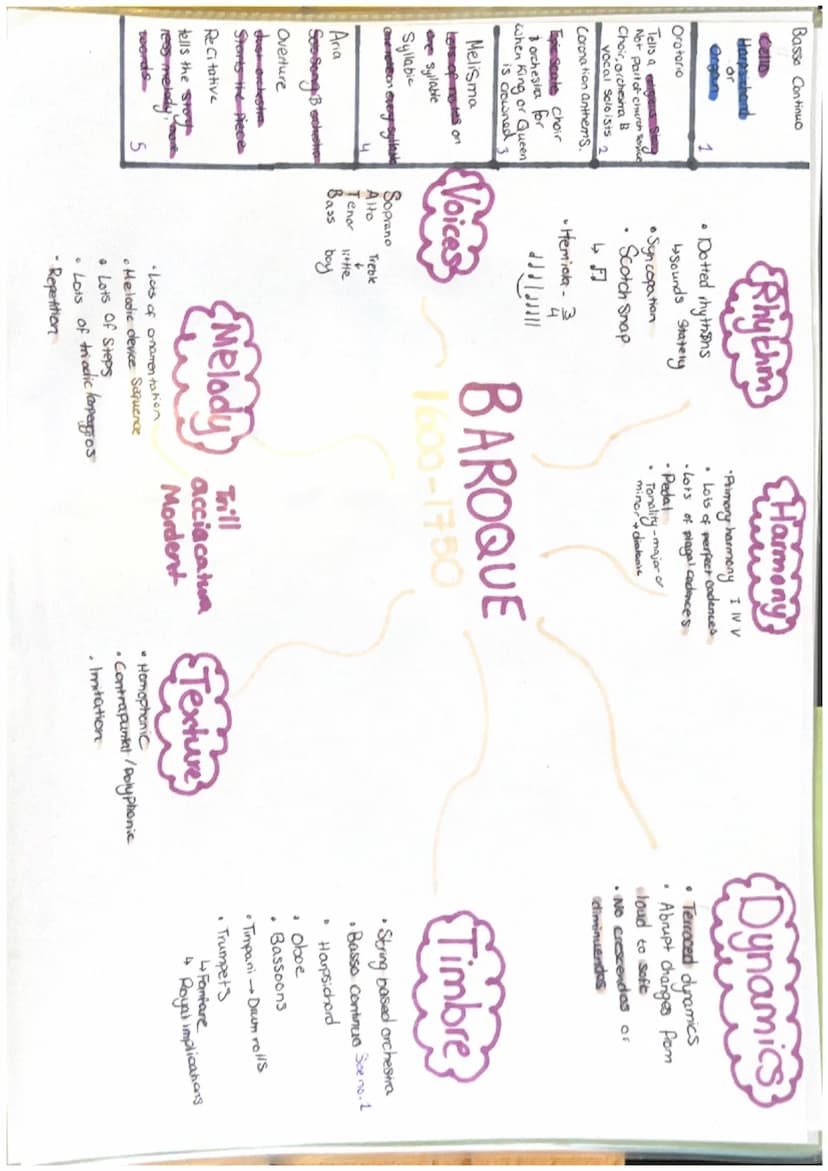 Basso Continuo
Cello
Harpsichord
or
Organ
1
Oratorio
Tells a religious story
Not part of church service
Choir, orchestra &
vocal soloists
2
Coronation anthems.
choir
& orchestra for
when King or Queen
is crowned
3
Melisma
Lots of notes on
one syllable
Syllabic
one note on every syllable
4
Aria
Solo song & orchestra
Overture
Just orchestra
Starts the piece
Recitative
tells the story
less melody, more
words
5
Rhythm
• Dotted rhythms
↳ sounds stately
• Syncopation
• Scotch snap
↳ ♫
• Hemiola - 3
4
Harmony
• Primary harmony I IV V
• Lots of perfect cadences
• Lots of plagal cadences
• Pedal
• Tonality - major or
minor + diatonic
Dynamics
• Terraced dynamics
• Abrupt changes from
loud to soft
• No crescendos or
diminuendos
Voices
Soprano Treble
Alto ↓
Tenor little
Bass boy
BAROQUE
1600-1750
Timbre
• String based orchestra
• Basso Continuo See no. 1
• Harpsichord
• Oboe
• Bassoons
• Timpani → Drum rolls
• Trumpets
↳ Fanfare
↳ Royal implications
Melody
• Lots of ornamentation
• Melodic device Sequence
• Lots of Steps
• Lots of triadic/arpeggios
• Repetition
Trill
acciacatura
Mordent
Texture
• Homophonic
• Contrapuntal / Polyphonic
• Imitation